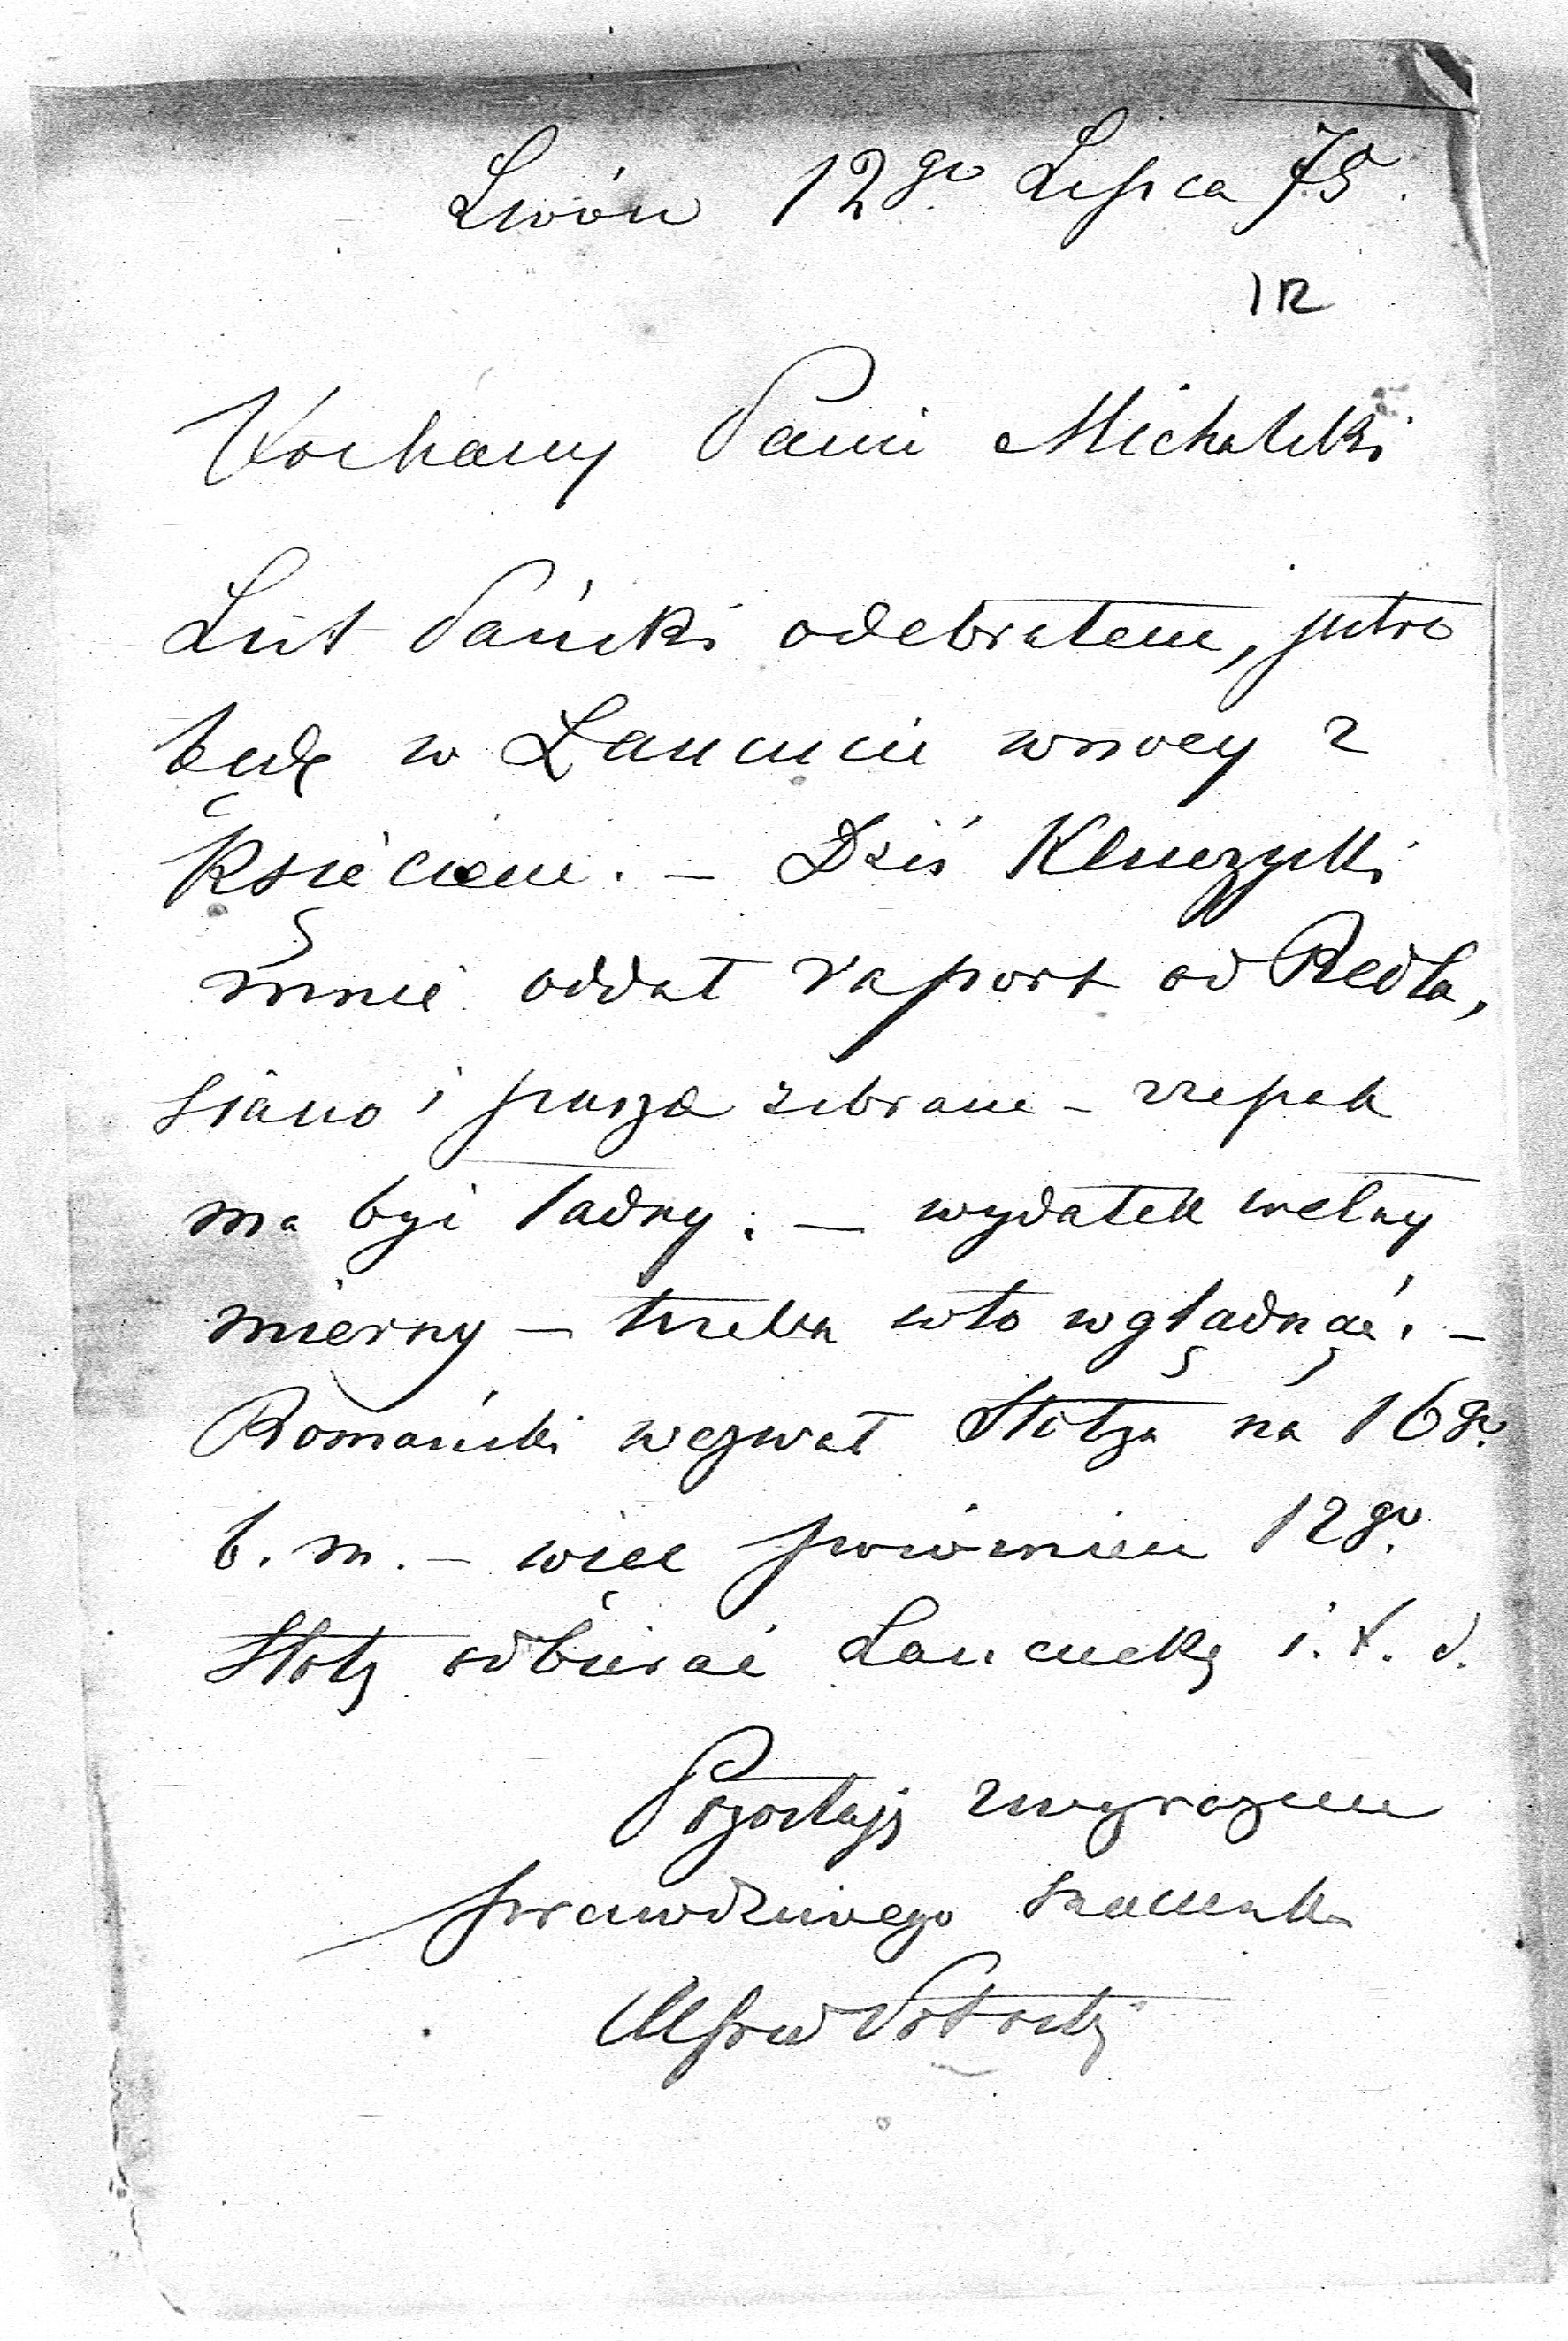 Lwów 12go Lipca 75.
12
Kochany Panie Michalski
List Pański odebrałem, jutro
będę w Łańcucie w nocy z
Księciem. – Dziś Kluczycki
mnie oddał raport od Redla,
siano i pasza zebrane – rzepak
ma być ładny. – wydatek wełny
mierny – trzeba w to wglądnąć. –
Romański wezwał Stotza na 16go
b. m. – więc powinien 12go
Stotz odbierać Łańcucką i. t. d.
Pozostaję z wyrazem
prawdziwego szacunku
Alfred Potocki